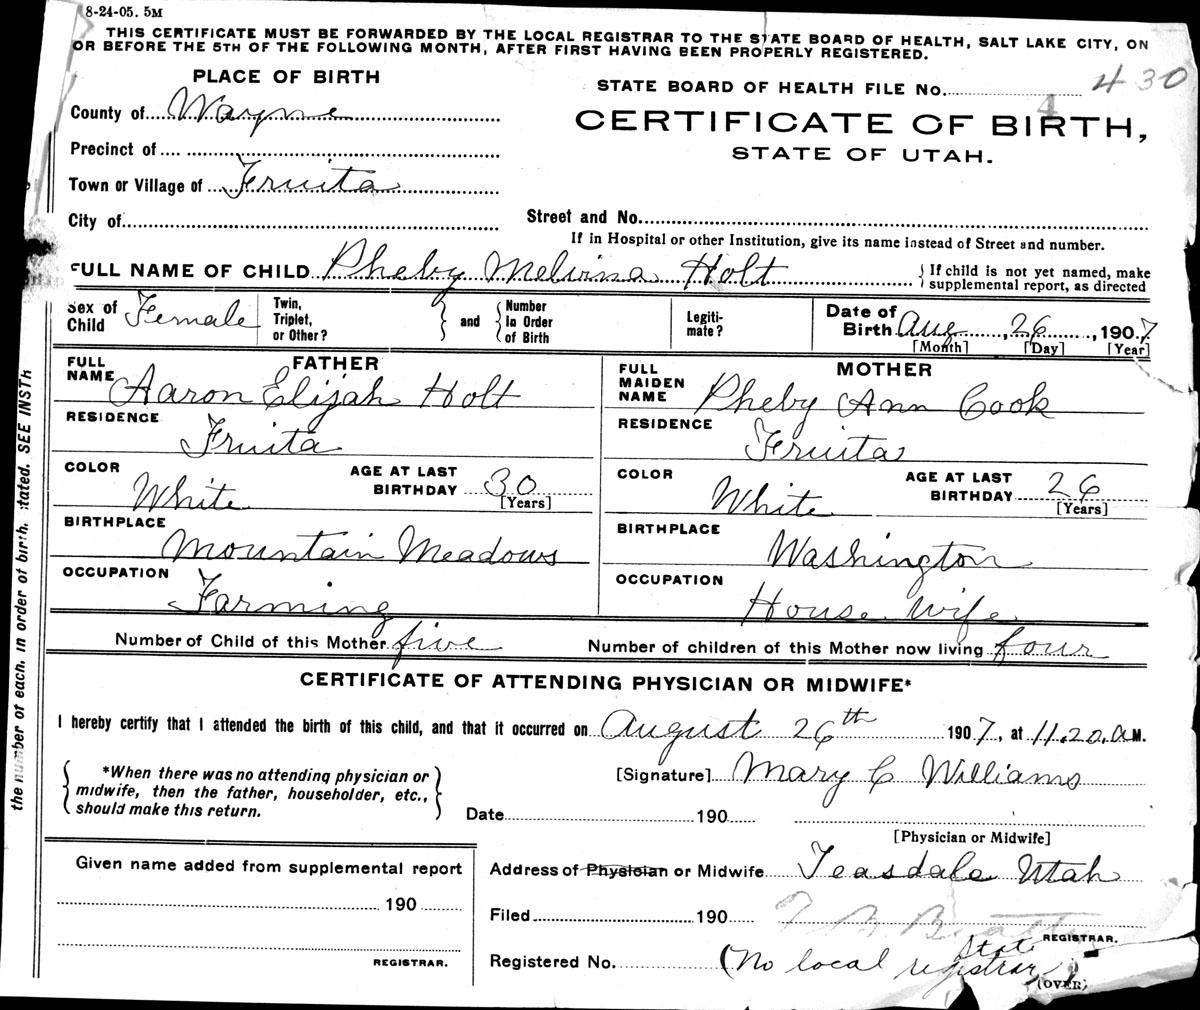 8-24-05. 5M
THIS CERTIFICATE MUST BE FORWARDED BY THE LOCAL REGISTRAR TO THE STATE BOARD OF HEALTH, SALT LAKE CITY, ON
OR BEFORE THE 5TH OF THE FOLLOWING MONTH, AFTER FIRST HAVING BEEN PROPERLY REGISTERED.
PLACE OF BIRTH
STATE BOARD OF HEALTH FILE No. 430
4
County of Wayne
CERTIFICATE OF BIRTH,
STATE OF UTAH.
Precinct of
Town or Village of Fruita
City of
Street and No.
If in Hospital or other Institution, give its name instead of Street and number.
FULL NAME OF CHILD Pheby Melvina Holt
If child is not yet named, make
supplemental report, as directed
Sex of
Child Female
Twin,
Triplet,
or Other?
and
Number
In Order
of Birth
Legiti-
mate?
Date of
Birth Aug, 26, 1907
[Month] [Day] [Year]
FATHER
FULL
NAME Aaron Elijah Holt
RESIDENCE
Fruita
COLOR White
AGE AT LAST
BIRTHDAY 30
[Years]
BIRTHPLACE
Mountain Meadows
OCCUPATION
Farming
MOTHER
FULL
MAIDEN
NAME Pheby Ann Cook
RESIDENCE
Fruita
COLOR White
AGE AT LAST
BIRTHDAY 26
[Years]
BIRTHPLACE
Washington
OCCUPATION
House wife
Number of Child of this Mother five
Number of children of this Mother now living four
CERTIFICATE OF ATTENDING PHYSICIAN OR MIDWIFE*
I hereby certify that I attended the birth of this child, and that it occurred on August 26th 1907, at 11.20.a M.
*When there was no attending physician or
midwife, then the father, householder, etc.,
should make this return.
[Signature] Mary C Williams
Date 190
[Physician or Midwife]
Given name added from supplemental report
190
REGISTRAR.
Address of Physician or Midwife Teasdale Utah
Filed 190 T. B. Beatty
REGISTRAR.
State
Registered No. (No local registrar)
(OVER)
the number of each, in order of birth, stated. SEE INST